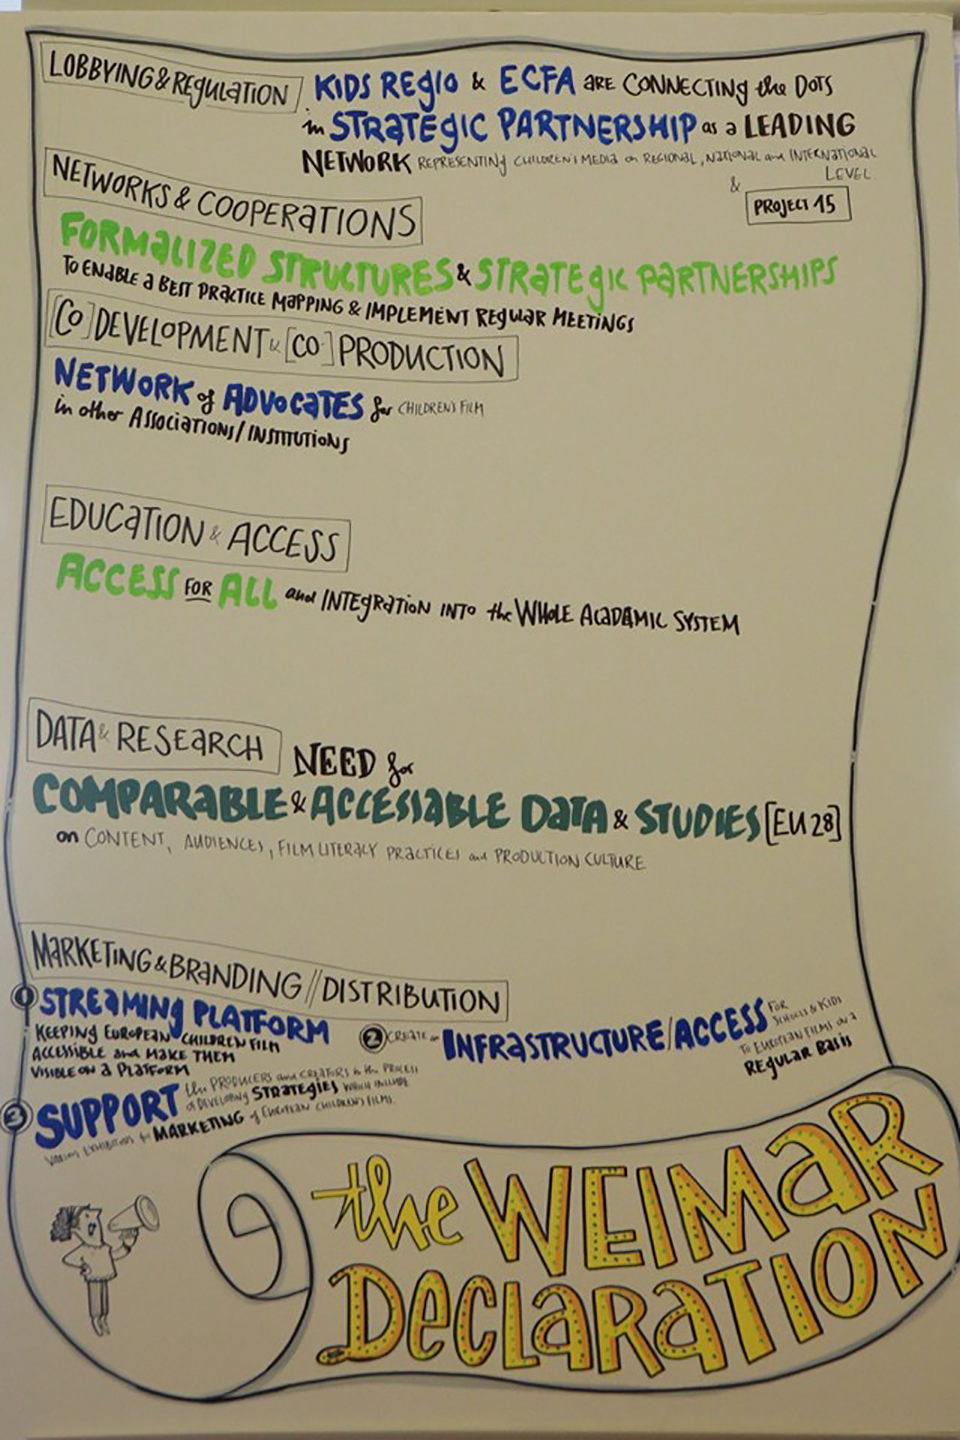 LOBBYING & REGULATION
KIDS REGIO & ECFA ARE CONNECTING the DOTS
in STRATEGIC PARTNERSHIP as a LEADING
NETWORK REPRESENTING CHILDREN'S MEDIA on REGIONAL, NATIONAL and INTERNATIONAL
LEVEL
& PROJECT 15
NETWORKS & COOPERATIONS
FORMALIZED STRUCTURES & STRATEGIC PARTNERSHIPS
TO ENABLE A BEST PRACTICE MAPPING & IMPLEMENT REGULAR MEETINGS
[CO]DEVELOPMENT & [CO]PRODUCTION
NETWORK of ADVOCATES for CHILDREN'S FILM
in other ASSOCIATIONS/INSTITUTIONS
EDUCATION & ACCESS
ACCESS FOR ALL and INTEGRATION INTO the WHOLE ACADAMIC SYSTEM
DATA & RESEARCH
NEED for
COMPARABLE & ACCESIABLE DATA & STUDIES [EU 28]
on CONTENT, AUDIENCES, FILM LITERACY PRACTICES and PRODUCTION CULTURE
MARKETING & BRANDING // DISTRIBUTION
1 STREAMING PLATFORM
KEEPING EUROPEAN CHILDREN FILM
ACCESSIBLE and MAKE THEM
VISIBLE ON A PLATFORM
2 CREATE INFRASTRUCTURE/ACCESS FOR
SCHOOLS & KIDS
TO EUROPEAN FILMS ON A
REGULAR BASIS
3 SUPPORT the PRODUCERS and CREATORS in the PROCESS
of DEVELOPING STRATEGIES WHICH INCLUDE
EXHIBITION MARKETING of EUROPEAN CHILDREN'S FILMS.
the WEIMAR
DECLARATION